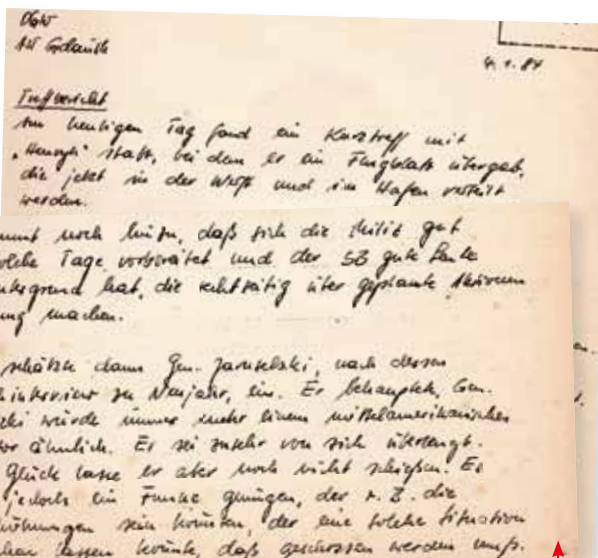 OGW
AW Gdańsk
4. 1. 84
Treffbericht
Am heutigen Tag fand ein Kurztreff mit
„Henryk“ statt, bei dem er ein Flugblatt übergab,
die jetzt in der Werft und im Hafen verteilt
werden.
mmt noch hinzu, daß sich die Miliz gut
olche Tage vorbereitet und der SB gute Leute
ntergrund hat, die rechtzeitig über geplante Aktionen
ung machen.
schätzte dann Gen. Jaruselski, nach dessen
interview zu Neujahr, ein. Er behauptete, Gen.
ski würde immer mehr einem mittelamerikanischen
or ähnlich. Er sei zusehr von sich überzeugt.
Glück lasse er aber noch nicht schießen. Es
jedoch ein Funke genügen, der z. B. die
höhungen sein könnten, der eine solche Situation
hen lassen könnte, daß geschossen werden muß.